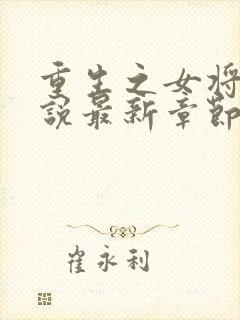 重生之女将
說最新章節
崔永利